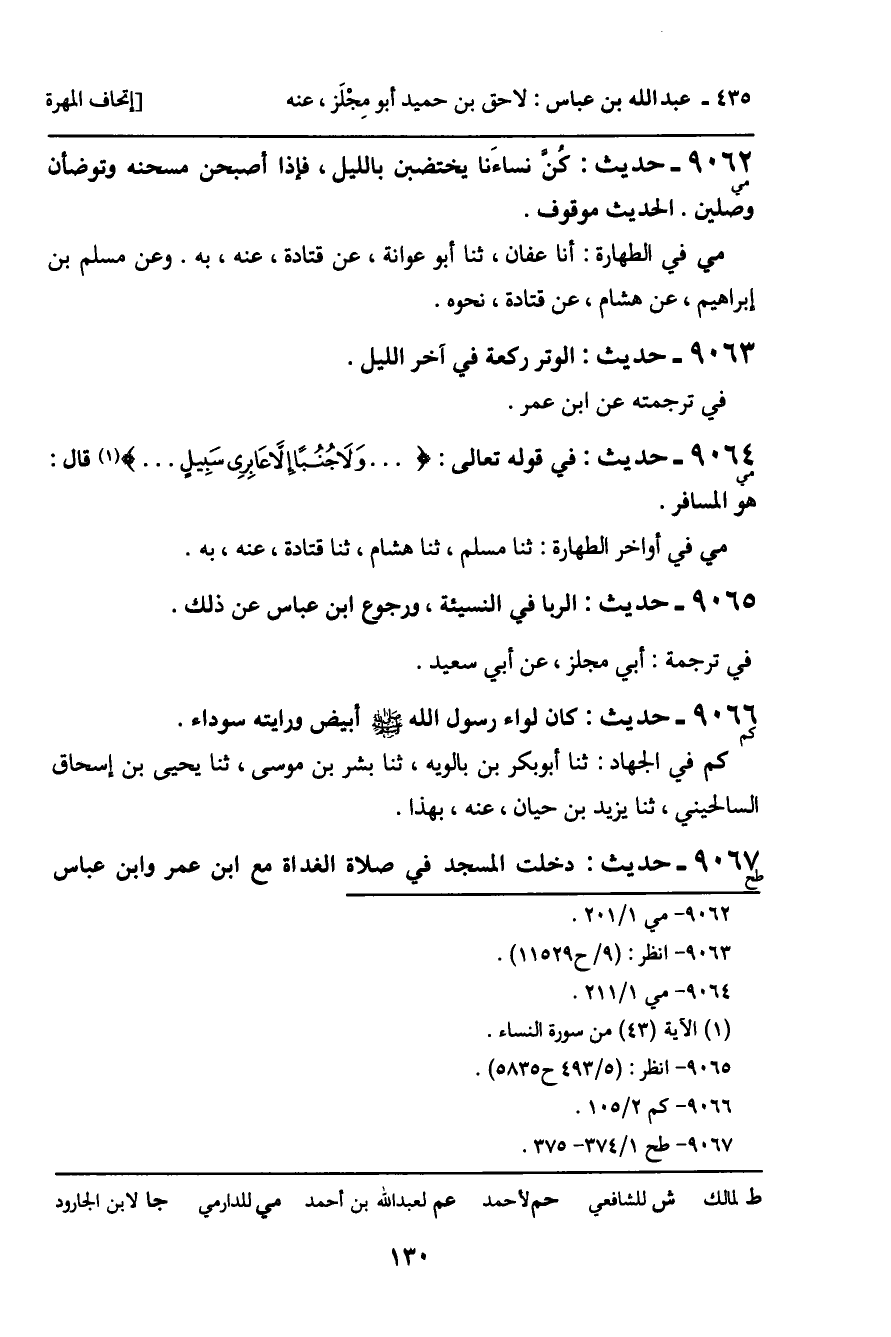 ٤٣٥ ـ عبدالله بن عباس : لاحق بن حميد أبو مِجْلَز ، عنه [إتحاف المهرة
٩٠٦٢ ـ حديث : كُنَّ نساءَنا يختضبن بالليل ، فإذا أصبحن مسحنه وتوضأن
مي
وصلين . الحديث موقوف .
مي في الطهارة : أنا عفان ، ثنا أبو عوانة ، عن قتادة ، عنه ، به . وعن مسلم بن
إبراهيم ، عن هشام ، عن قتادة ، نحوه .
٩٠٦٣ ـ حديث : الوتر ركعة في آخر الليل .
في ترجمته عن ابن عمر .
٩٠٦٤ ـ حديث : في قوله تعالى : ﴿ . . . وَلَا جُنُبًا إِلَّا عَابِرِى سَبِيلٍ . . . ﴾(١) قال :
مي
هو المسافر .
مي في أواخر الطهارة : ثنا مسلم ، ثنا هشام ، ثنا قتادة ، عنه ، به .
٩٠٦٥ ـ حديث : الربا في النسيئة ، ورجوع ابن عباس عن ذلك .
في ترجمة : أبي مجلز ، عن أبي سعيد .
٩٠٦٦ ـ حديث : كان لواء رسول الله ﷺ أبيض ورايته سوداء .
كم
كم في الجهاد : ثنا أبوبكر بن بالويه ، ثنا بشر بن موسى ، ثنا يحيى بن إسحاق
السالحيني ، ثنا يزيد بن حيان ، عنه ، بهذا .
٩٠٦٧ ـ حديث : دخلت المسجد في صلاة الغداة مع ابن عمر وابن عباس
طح
٩٠٦٢– مي ٢٠١/١ .
٩٠٦٣– انظر : (٩/ ح١١٥٢٩) .
٩٠٦٤– مي ٢١١/١ .
(١) الآية (٤٣) من سورة النساء .
٩٠٦٥– انظر : (٤٩٣/٥ ح٥٨٣٥) .
٩٠٦٦– كم ١٠٥/٢ .
٩٠٦٧– طح ٣٧٤/١– ٣٧٥ .
ط لمالك ش للشافعي حم لأحمد عم لعبدالله بن أحمد مي للدارمي جا لابن الجارود
١٣٠